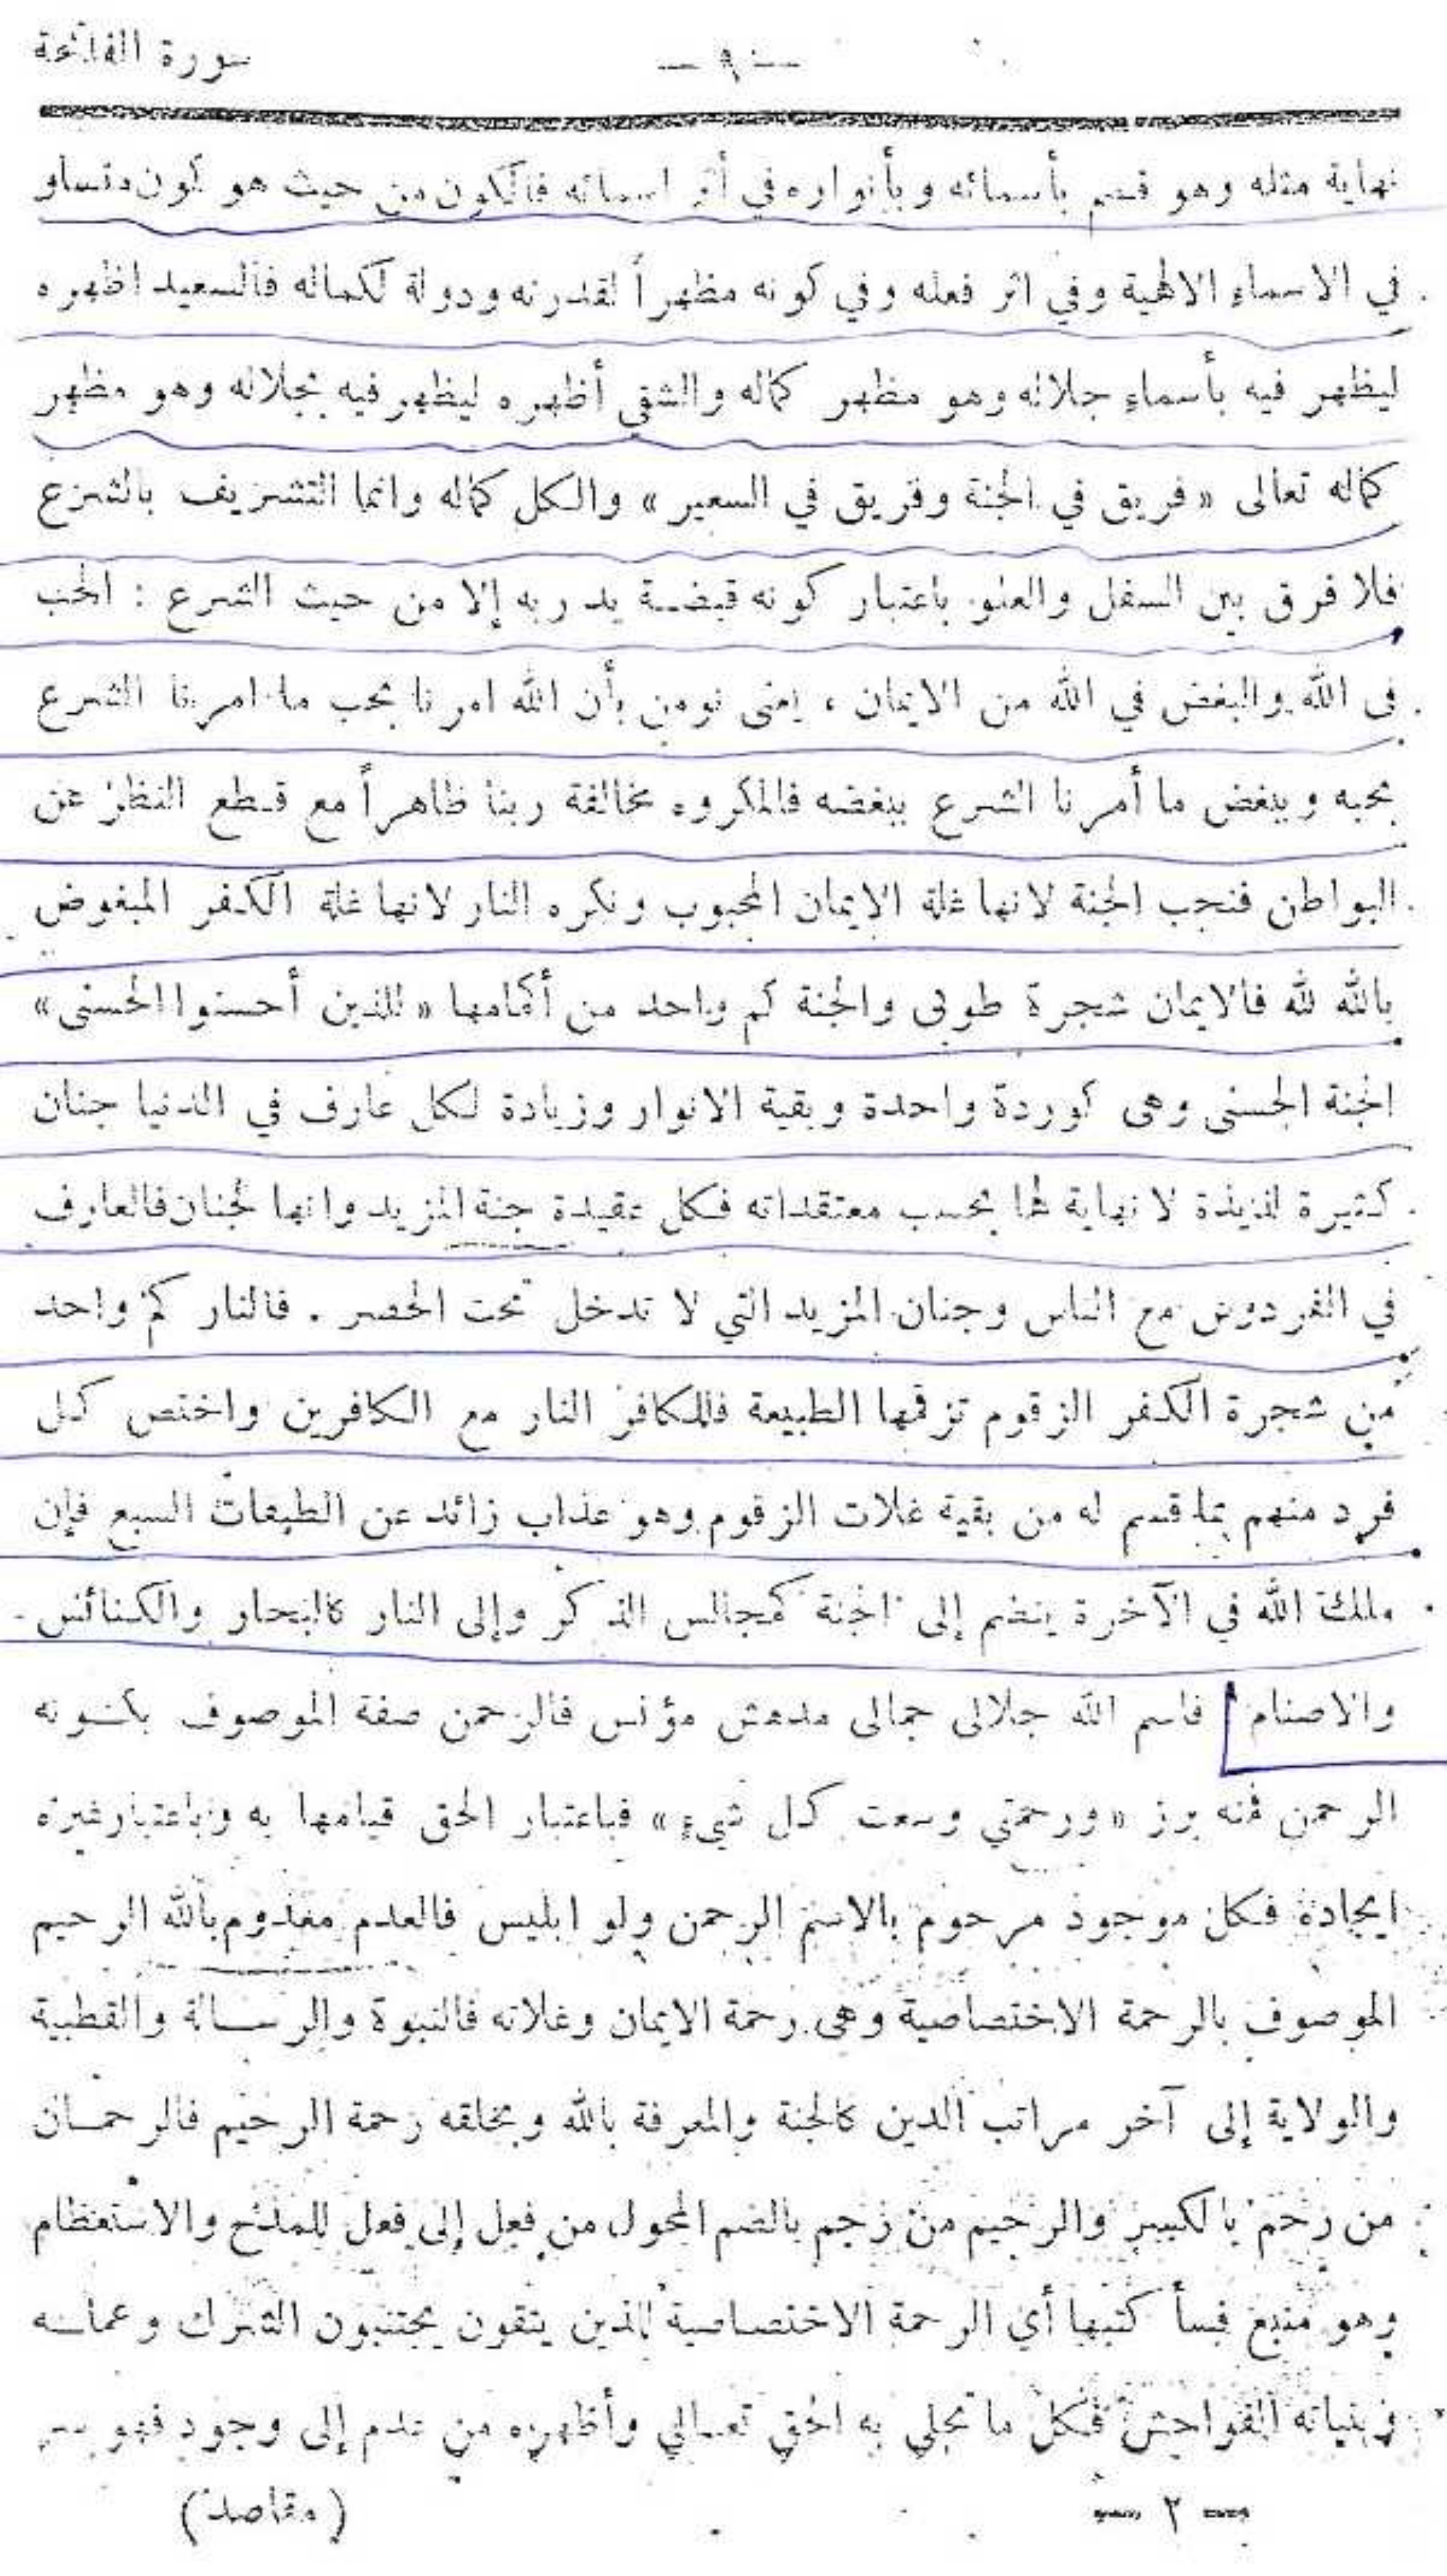 سورة الفاتحة
— ٩ —
نهاية مثله وهو قسم بأسمائه وبأنواره في أثر اسمائه فالكون من حيث هو كون متساو
في الاسماء الالهية وفي اثر فعله وفي كونه مظهراً لقدرته ودولة لكماله فالسعيد اظهره
ليظهر فيه بأسماء جلاله وهو مظهر كماله والشقي أظهره ليظهر فيه بجلاله وهو مظهر
كماله تعالى « فريق في الجنة وفريق في السعير » والكل كماله وانما التشريف بالشرع
فلا فرق بين السفل والعلو باعتبار كونه قبضة يد ربه إلا من حيث الشرع : الحب
فى الله والبغض في الله من الايمان ، يعنى نومن بأن الله امرنا بحب ما امرنا الشرع
بحبه وببغض ما أمرنا الشرع ببغضه فالمكروه مخالفة ربنا ظاهراً مع قطع النظر عن
البواطن فنحب الجنة لانها غلة الايمان المحبوب ونكره النار لانها غلة الكفر المبغوض
بالله لله فالايمان شجرة طوبى والجنة كم واحد من أكمامها « للذين أحسنوا الحسنى »
الجنة الحسنى وهى كوردة واحدة وبقية الانوار وزيادة لكل عارف في الدنيا جنان
كثيرة لذيذة لا نهاية لها بحسب معتقداته فكل عقيدة جنة المزيد وانها لجنان فالعارف
في الفردوس مع الناس وجنان المزيد التي لا تدخل تحت الحصر . فالنار كم واحد
من شجرة الكفر الزقوم تزقمها الطبيعة فللكافر النار مع الكافرين واختص كل
فرد منهم بما قسم له من بقية غلات الزقوم وهو عذاب زائد عن الطبقات السبع فإن
ملك الله في الآخرة ينضم إلى الجنة كمجالس الذكر وإلى النار كالبحار والكنائس
والاصنام فاسم الله جلالى جمالى مدهش مؤنس فالرحمن صفة الموصوف بكونه
الرحمن فمنه برز « ورحمتي وسعت كل شيء » فباعتبار الحق قيامها به وباعتبار غيره
ايجاده فكل موجود مرحوم بالاسم الرحمن ولو ابليس فالعدم معدوم بالله الرحيم
الموصوف بالرحمة الاختصاصية وهى رحمة الايمان وغلاته فالنبوة والرسالة والقطبية
والولاية إلى آخر مراتب الدين كالجنة والمعرفة بالله وبخلقه رحمة الرحيم فالرحمان
من رحم بالكسر والرحيم من رحم بالضم المحول من فعل إلى فعل للمدح والاستعظام
وهو منبع فسأكتبها أي الرحمة الاختصاصية للذين يتقون يجتنبون الشرك وعماله
وبنياته الفواحش فكل ما تجلي به الحق تعالي وأظهره من عدم إلى وجود فهو
— ٢ —
( مقاصد )